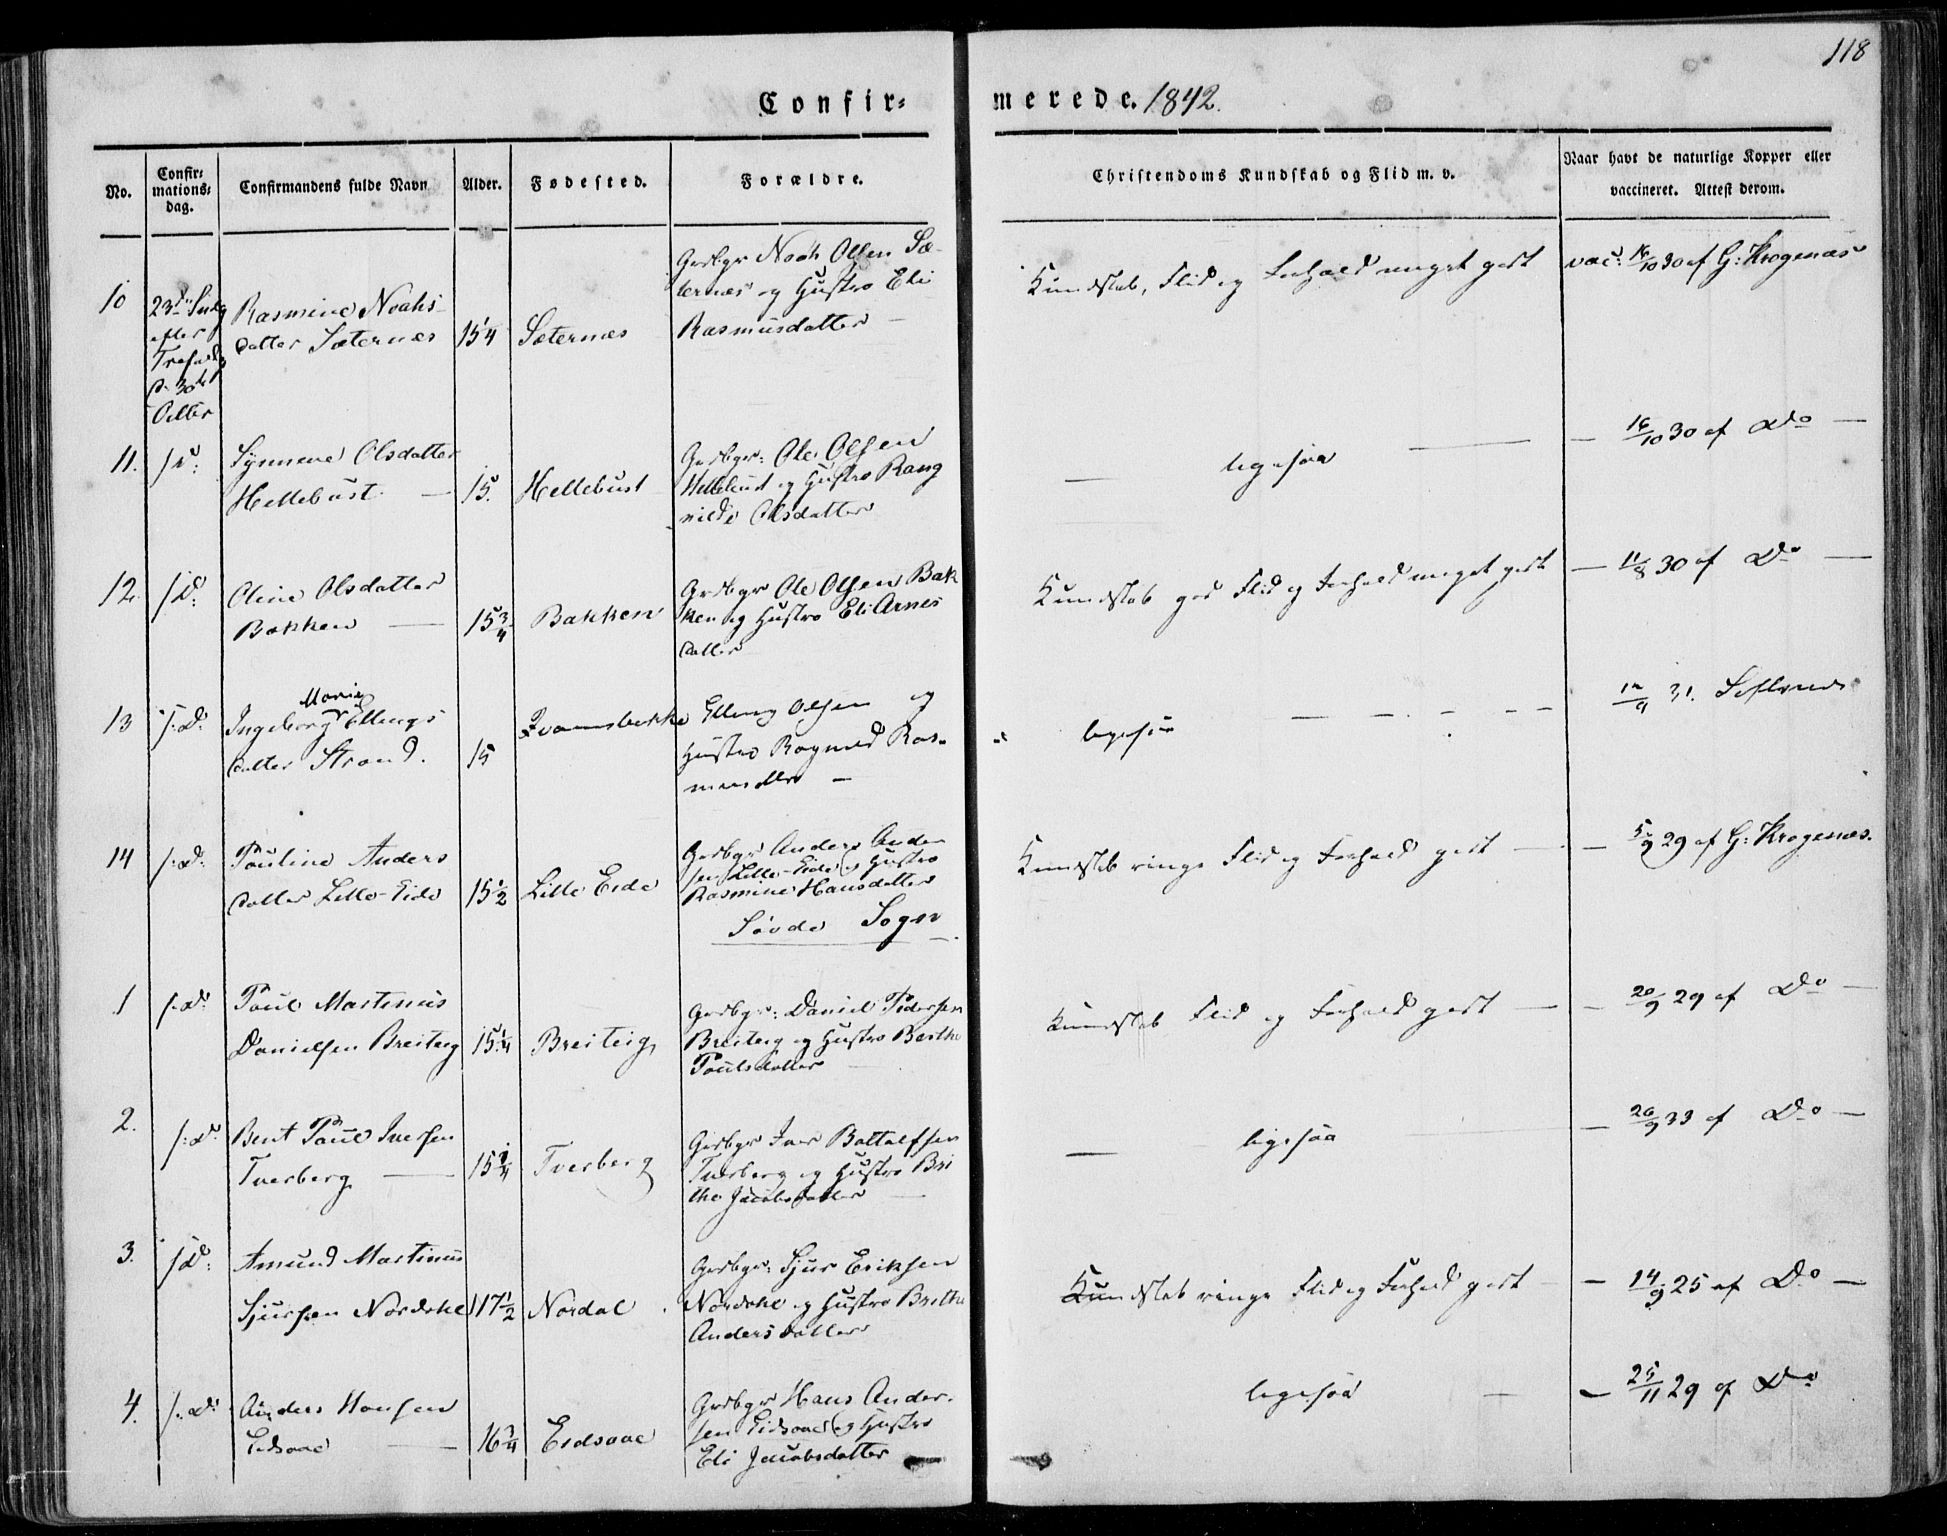 118
Confir=
merede. 1842.
No.
Confir=
mations=
dag.
Confirmandens fulde Navn
Alder.
Fødested.
Forældre.
Christendoms Kundskab og Flid m. v.
Naar havt de naturlige Kopper eller
vaccineret. Attest derom.
10
23de
efter
Trefold
d. 30te
Octbr
Rasmine Noahs-
datter Sæternæs
15 1/4
Sæternæs
Grdbgr Noah Olsen Sæ-
ternæs og Hustro Eli
Rasmusdatter —
Kundskab, Flid og Forhold meget godt
vac: 16/10 30 af G: Krogenæs
11.
s: D:
Synneve Olsdatter
Hellebust —
15.
Hellebust
Grdbgr: Ole Olsen
Hellebust og Hustro Rang
nilde Olsdatter
— ligesaa —
— 16/10 30 af Do —
12.
s: D:
Oline Olsdatter
Bakken —
15 3/4
Bakken
Grdbgr Ole Olsen Bak
ken og Hustro Eli Arnes
datter
Kundskab god Flid og Forhold meget godt
— 11/8 30 af Do —
13
s: D:
Marie
Ingeborg Ellings
datter Strand.
15
Elling Olsen og
Hustro Ragnild Ras-
musdtr —
ligesaa — — — — —
31.
14
s: D:
Pauline Anders
datter Lille-Eide
15 1/2
Lille Eide
Grdbgr Anders Ander
sen Lille-Eide og Hustro
Rasmine Hansdatter
Kundskab ringe Flid og Forhold godt —
— 5/9 29 af G: Krogenæs.
Søvde Sogn
1
s: D:
Poul Martinus
Danielsen Breiteig
15 1/4
Breiteig
Grdbgr: Daniel Pedersen
Breiteig og Hustro Berthe
Poulsdatter
Kundskab Flid og Forhold godt —
— 20/9 29 af Do —
2.
s: D:
Bent Poul Iversen
Tverberg —
15 1/4
Tverberg
Grdbgr Iver Bottolfsen
Tverberg og Hustro Bri
the Jacobsdatter —
— ligesaa
— 26/9 33 af Do —
3.
s: D:
Amund Martinus
Sjursen Nordahl
17 1/2
Nordal
Grdbgr: Sjur Eriksen
Nordahl og Hustro Brithe
Andersdatter
Kundskab ringe Flid og Forhold godt —
— 14/9 25 af Do —
4.
s: D:
Anders Hansen
Eidsaae —
16 3/4
Eidsaae
Grdbgr Hans Ander-
sen Eidsaae og Hustro
Eli Jacobsdatter
ligesaa —
— 25/11 29 af Do